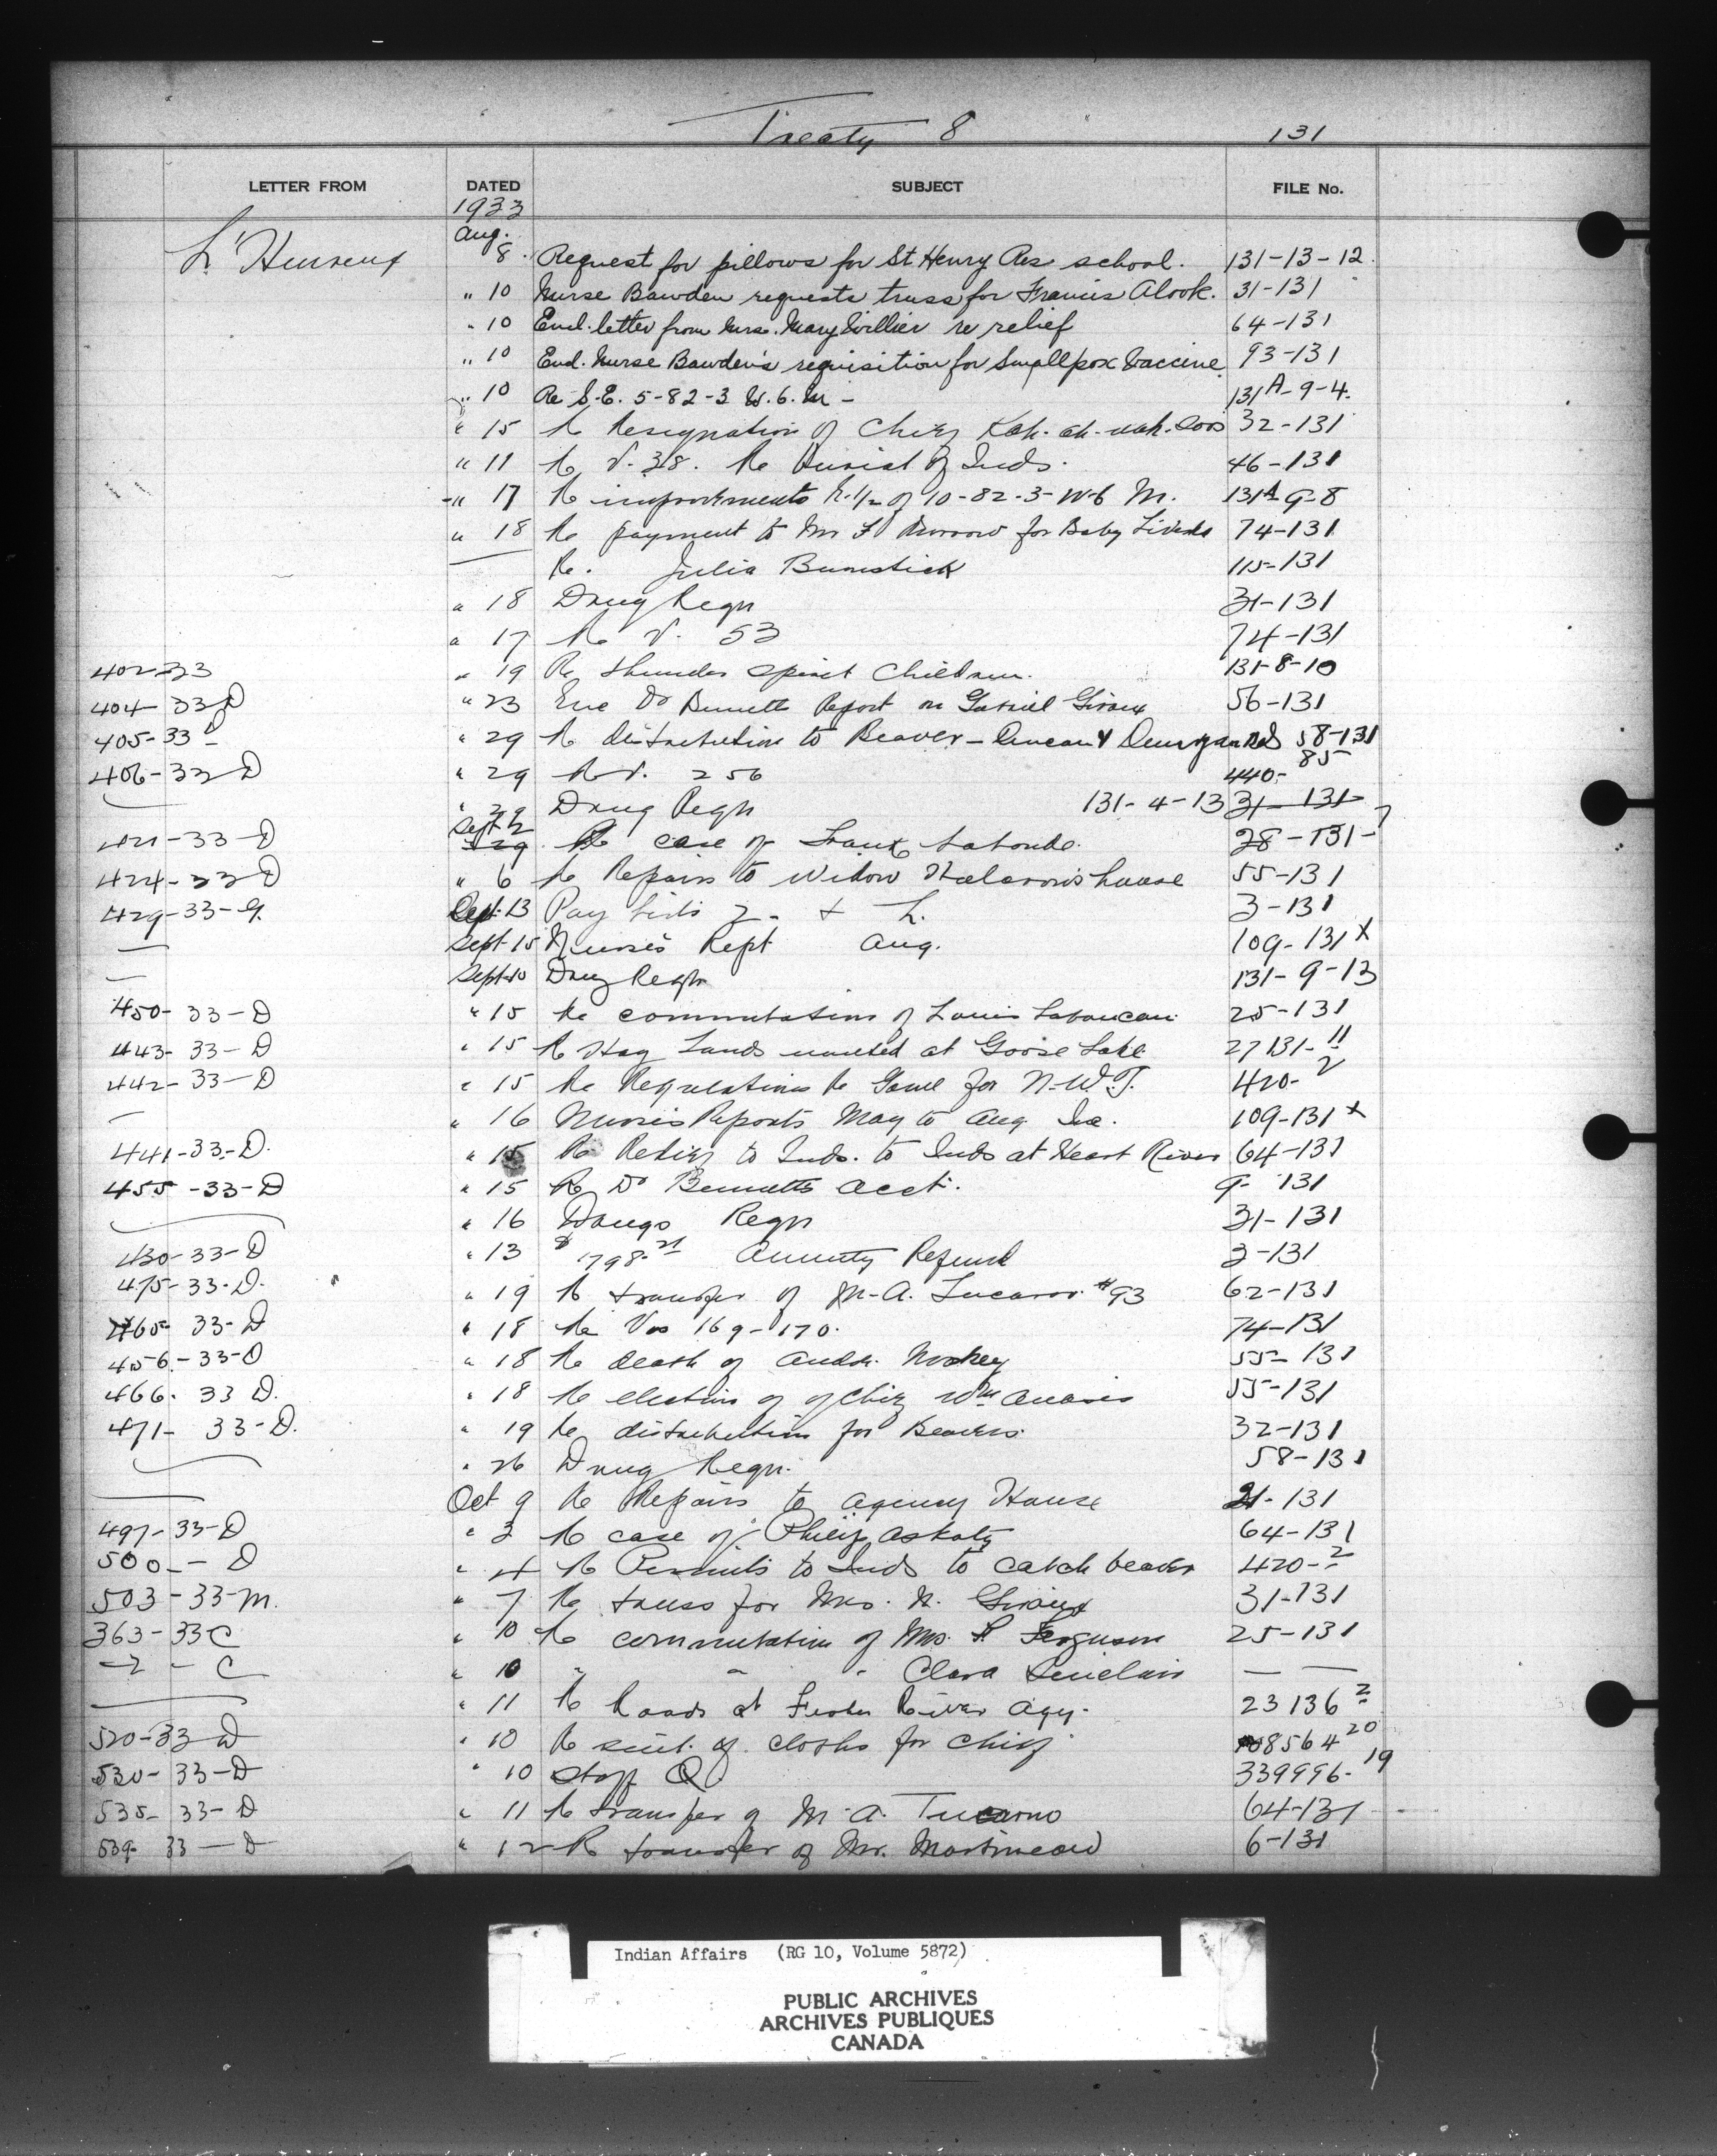 Treaty 8 131
LETTER FROM DATED SUBJECT FILE No.
1933
L'Heureux Aug. 8 Request for pillows for St Henry Res school. 131-13-12
" 10 Nurse Bawden requests truss for Francis Alook. 31-131
" 10 Encl. letter from Mrs. Mary Willier re relief 64-131
" 10 Encl. Nurse Bawden's requisition for Smallpox Vaccine 93-131
" 10 Re S.E. 5-82-3 W.6.M - 131A-9-4.
" 15 Re Resignation of Chief 32-131
" 11 Re V. 38. Re Burial of Inds. 46-131
" 17 Re improvements N.1/2 of 10-82-3-W-6 M. 131A-9-8
" 18 Re payment to Mrs for Baby 74-131
— Re. Julia Bumstick 115-131
" 18 Drug Reqn 31-131
" 17 Re V. 53 74-131
402-33 " 19 Re Thunder Spirit Children. 131-8-10
404-33 D " 23 Enc Dr Bennett Report on Gabriel Giroux 56-131
405-33 " 29 Re distribution to Beaver - Duncan & 58-131
406-33 D " 29 Re V. 256 440-85
— " 29 Drug Reqn 131-4-13 31-131
421-33-D Sept 2 Re case of Frank 28-131-7
424-33 D " 6 Re Repairs to Widow house 55-131
429-33-G. Sept. 13 Pay Lists & L. 3-131
— Sept 15 Nurse's Rept Aug. 109-131 x
— Sept 10 Drug Reqn 131-9-13
450-33-D " 15 Re commutation of Louis Laboucan 25-131
443-33-D " 15 Re Hay Lands wanted at Goose Lake 27131-11
442-33-D " 15 Re Regulations Re Game for N.W.T. 420-2
— " 16 Nurses Reports May to Aug Inc. 109-131 x
441-33-D. " 15 Re Relief to Inds. to Inds at Heart River 64-131
455-33-D " 15 Re Dr Bennetts acct. 9-131
— " 16 Drugs Reqn 31-131
430-33-D " 13 $1798.21 Annuity Refund 3-131
475-33-D. " 19 Re transfer of M-A. #93 62-131
465-33-D " 18 Re Vos 169-170. 74-131
456-33-D " 18 Re death of Andw. Nookey 55-131
466-33 D. " 18 Re election of of Chief Wm 55-131
471-33-D. " 19 Re distribution for Beavers. 32-131
— " 26 Drug Reqn. 58-131
— Oct 9 Re Repairs to Agency House 21-131
497-33-D " 3 Re case of Philip 64-131
500-- D " 4 Re Permits to Inds to catch beaver 420-2
503-33-M. " 7 Re truss for Mrs. N. Giroux 31-131
363-33 C " 10 Re commutation of Mrs. Ferguson 25-131
- C " 10 " " " Clara Sinclair — —
— " 11 Re Roads at River Agy. 23136 2
520-33-D " 10 Re suit. of cloths for Chief 8564 20
530-33-D " 10 Staff Q 339996-19
535-33-D " 11 Re transfer of M.A. 64-131
539-33-D " 12 Re transfer of Mr. Martineau 6-131
Indian Affairs (RG 10, Volume 5872)
PUBLIC ARCHIVES
ARCHIVES PUBLIQUES
CANADA